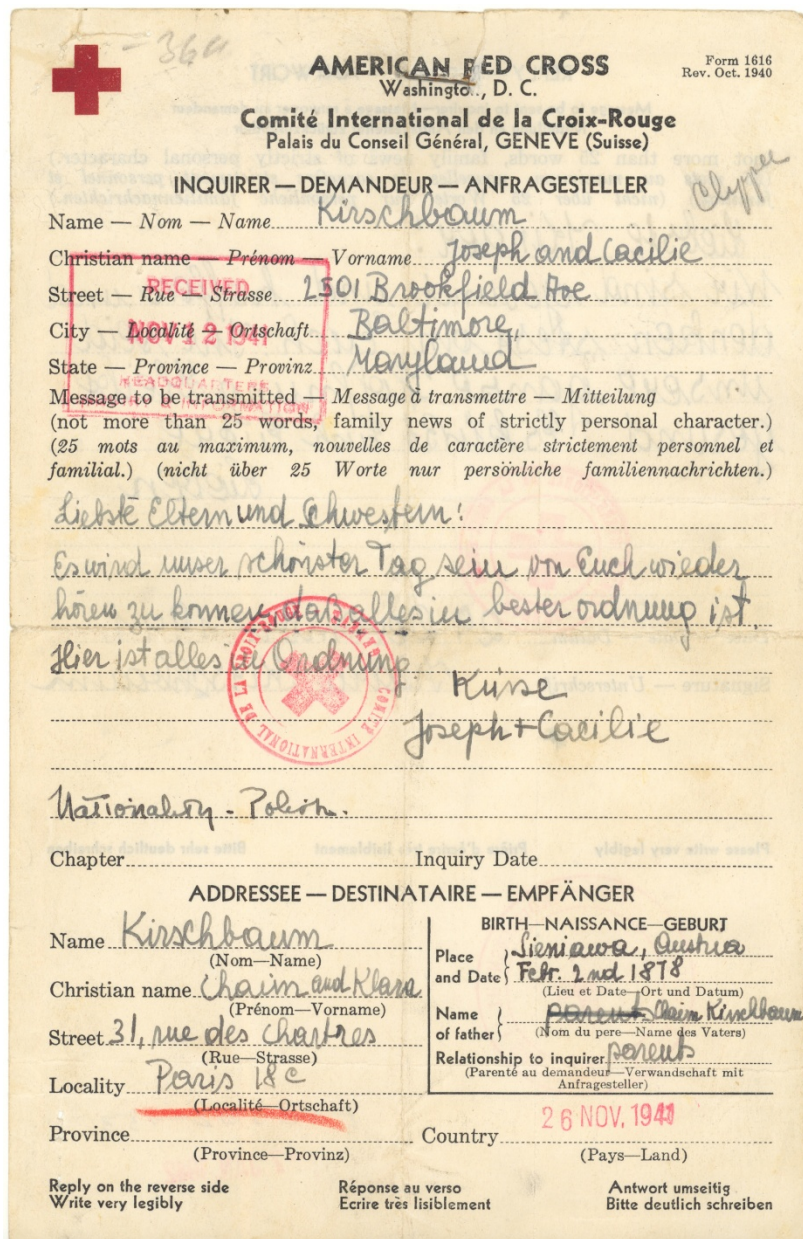 36a
AMERICAN RED CROSS
Washington, D. C.
Form 1616
Rev. Oct. 1940
Comité International de la Croix-Rouge
Palais du Conseil Général, GENEVE (Suisse)
Clipper
INQUIRER — DEMANDEUR — ANFRAGESTELLER
Name — Nom — Name Kirschbaum
Christian name — Prénom — Vorname Joseph and Cacilie
Street — Rue — Strasse 2501 Brookfield Ave
City — Localité — Ortschaft Baltimore,
State — Province — Provinz Maryland
RECEIVED
NOV 12 1941
HEADQUARTERS
INFORMATION
Message to be transmitted — Message à transmettre — Mitteilung
(not more than 25 words, family news of strictly personal character.)
(25 mots au maximum, nouvelles de caractère strictement personnel et
familial.) (nicht über 25 Worte nur persönliche familiennachrichten.)
Liebste Eltern und Schwestern!
Es wird unser schönster Tag sein von Euch wieder
hören zu konnen, daß alles in bester ordnung ist.
Hier ist alles in Ordnung
Küsse
Joseph + Cacilie
COMITÉ INTERNATIONAL DE LA CROIX-ROUGE
Nationality - Polish.
Chapter Inquiry Date
ADDRESSEE — DESTINATAIRE — EMPFÄNGER
Name Kirschbaum
(Nom—Name)
Christian name Chaim and Klara
(Prénom—Vorname)
Street 31, rue des Chartres
(Rue—Strasse)
Locality Paris 18e
(Localité—Ortschaft)
Province
(Province—Provinz)
BIRTH—NAISSANCE—GEBURT
Place and Date Sieniawa, Austria
Febr. 2nd 1878
(Lieu et Date—Ort und Datum)
Name of father parents Chaim Kirschbaum
(Nom du pere—Name des Vaters)
Relationship to inquirer parents
(Parenté au demandeur—Verwandschaft mit
Anfragesteller)
26 NOV. 1941
Country
(Pays—Land)
Reply on the reverse side
Write very legibly
Réponse au verso
Ecrire très lisiblement
Antwort umseitig
Bitte deutlich schreiben